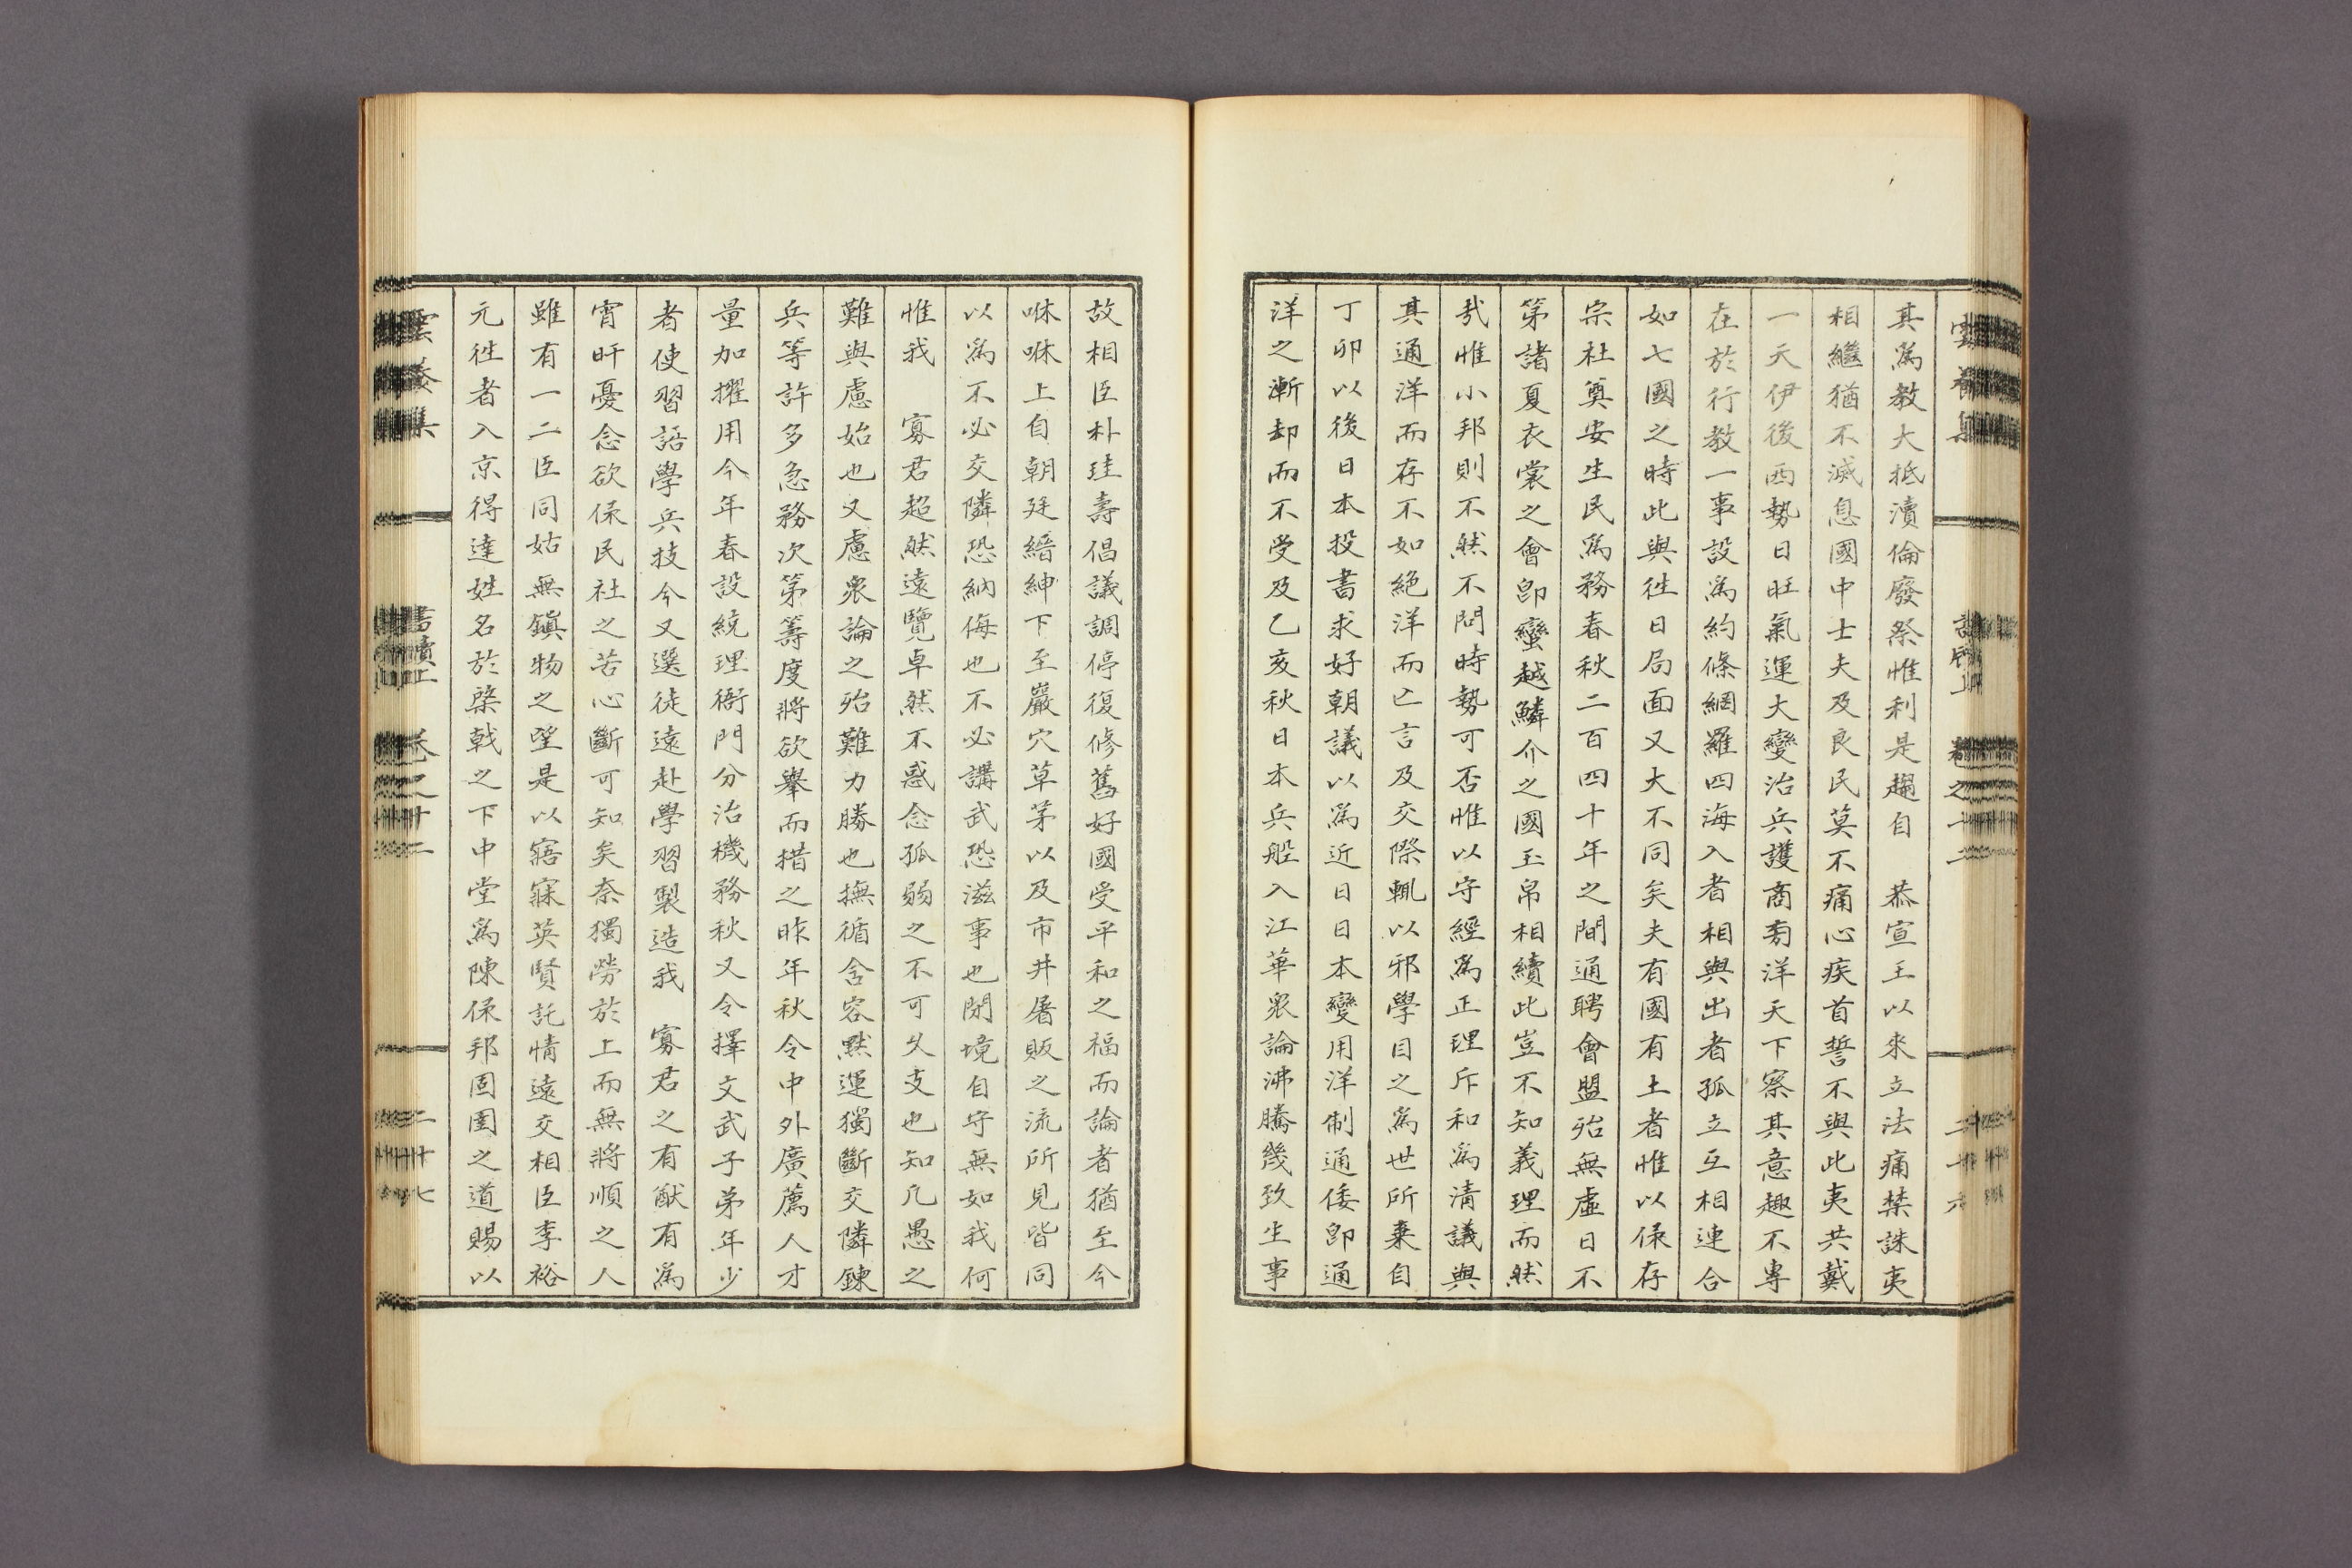 其爲教大抵瀆倫廢祭惟利是趨自 恭宣王以來立法痛禁誅夷
相繼猶不滅息國中士夫及良民莫不痛心疾首誓不與此夷共戴
一天伊後西勢日旺氣運大變治兵護商旁洋天下察其意趣不專
在於行教一事設爲約條網羅四海入者相與出者孤立互相連合
如七國之時此與徃日局面又大不同矣夫有國有土者惟以保存
宗社奠安生民爲務春秋二百四十年之間通聘會盟殆無虛日不
第諸夏衣裳之會卽蠻越鱗介之國玉帛相續此豈不知義理而然
㢤惟小邦則不然不問時勢可否惟以守經爲正理斥和爲淸議與
其通洋而存不如絶洋而亡言及交際輒以邪學目之爲世所棄自
丁卯以後日本投書求好朝議以爲近日日本變用洋制通倭卽通
洋之漸却而不受及乙亥秋日本兵船入江華衆論沸騰幾致生事
故相臣朴珪壽倡議調停復修舊好國受平和之福而論者猶至今
咻咻上自朝廷縉紳下至巖穴草茅以及市井屠販之流所見皆同
以爲不必交隣恐納侮也不必講武恐滋事也閉境自守無如我何
惟我 寡君超然遠覽卓然不惑念孤弱之不可久支也知凡愚之
難與慮始也又慮衆論之殆難力勝也撫循含容默運獨斷交隣鍊
兵等許多急務次第籌度將欲擧而措之昨年秋令中外廣薦人才
量加擢用今年春設統理衙門分治機務秋又令擇文武子弟年少
者使習語學兵技今又選徒遠赴學習製造我 寡君之有猷有爲
宵旰憂念欲保民社之苦心斷可知矣奈獨勞於上而無將順之人
雖有一二臣同姑無鎭物之望是以寤寐英賢託情遠交相臣李裕
元徃者入京得達姓名於棨戟之下中堂爲陳保邦固圉之道賜以
雲養集 書牘上 卷之十二 二十七